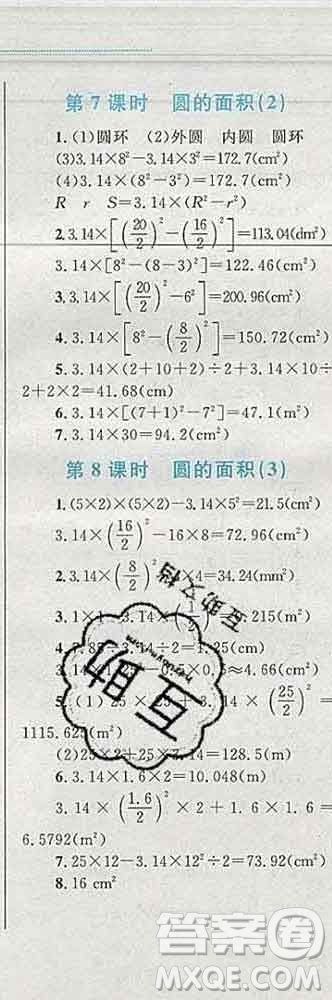 第7课时 圆的面积(2)
1.(1)圆环 (2)外圆 内圆 圆环
(3)3.14×8²-3.14×3²=172.7(cm²)
(4)3.14×(8²-3²)=172.7(cm²)
R r S=3.14×(R²-r²)
2.3.14×[(20/2)²-(16/2)²]=113.04(dm²)
3.14×[8²-(8-3)²]=122.46(cm²)
3.3.14×[(20/2)²-6²]=200.96(cm²)
4.3.14×[8²-(8/2)²]=150.72(cm²)
5.3.14×(2+10+2)÷2+3.14×10÷
2+2×2=41.68(cm)
6.3.14×[(7+1)²-7²]=47.1(m²)
7.3.14×30=94.2(cm²)
第8课时 圆的面积(3)
1.(5×2)×(5×2)-3.14×5²=21.5(cm²)
3.14×(16/2)²-16×8=72.96(cm²)
2.3.14×(8/2)²×4=34.24(mm²)
3.1×1-3.14×(1/2)²=0.215(m²)
4.7.85÷3.14÷2=1.25(cm)
×0.5≈4.66(cm²)
5.(1) 25×25+3.14×(25/2)²=
1115.625(m²)
(2)25×2+25×3.14=128.5(m)
6.3.14×1.6×2=10.048(m)
3.14×(1.6/2)²×2+1.6×1.6=
6.5792(m²)
7.25×12-3.14×12²÷2=73.92(cm²)
8.16 cm²
互助文档
答案圈
MXQE.COM